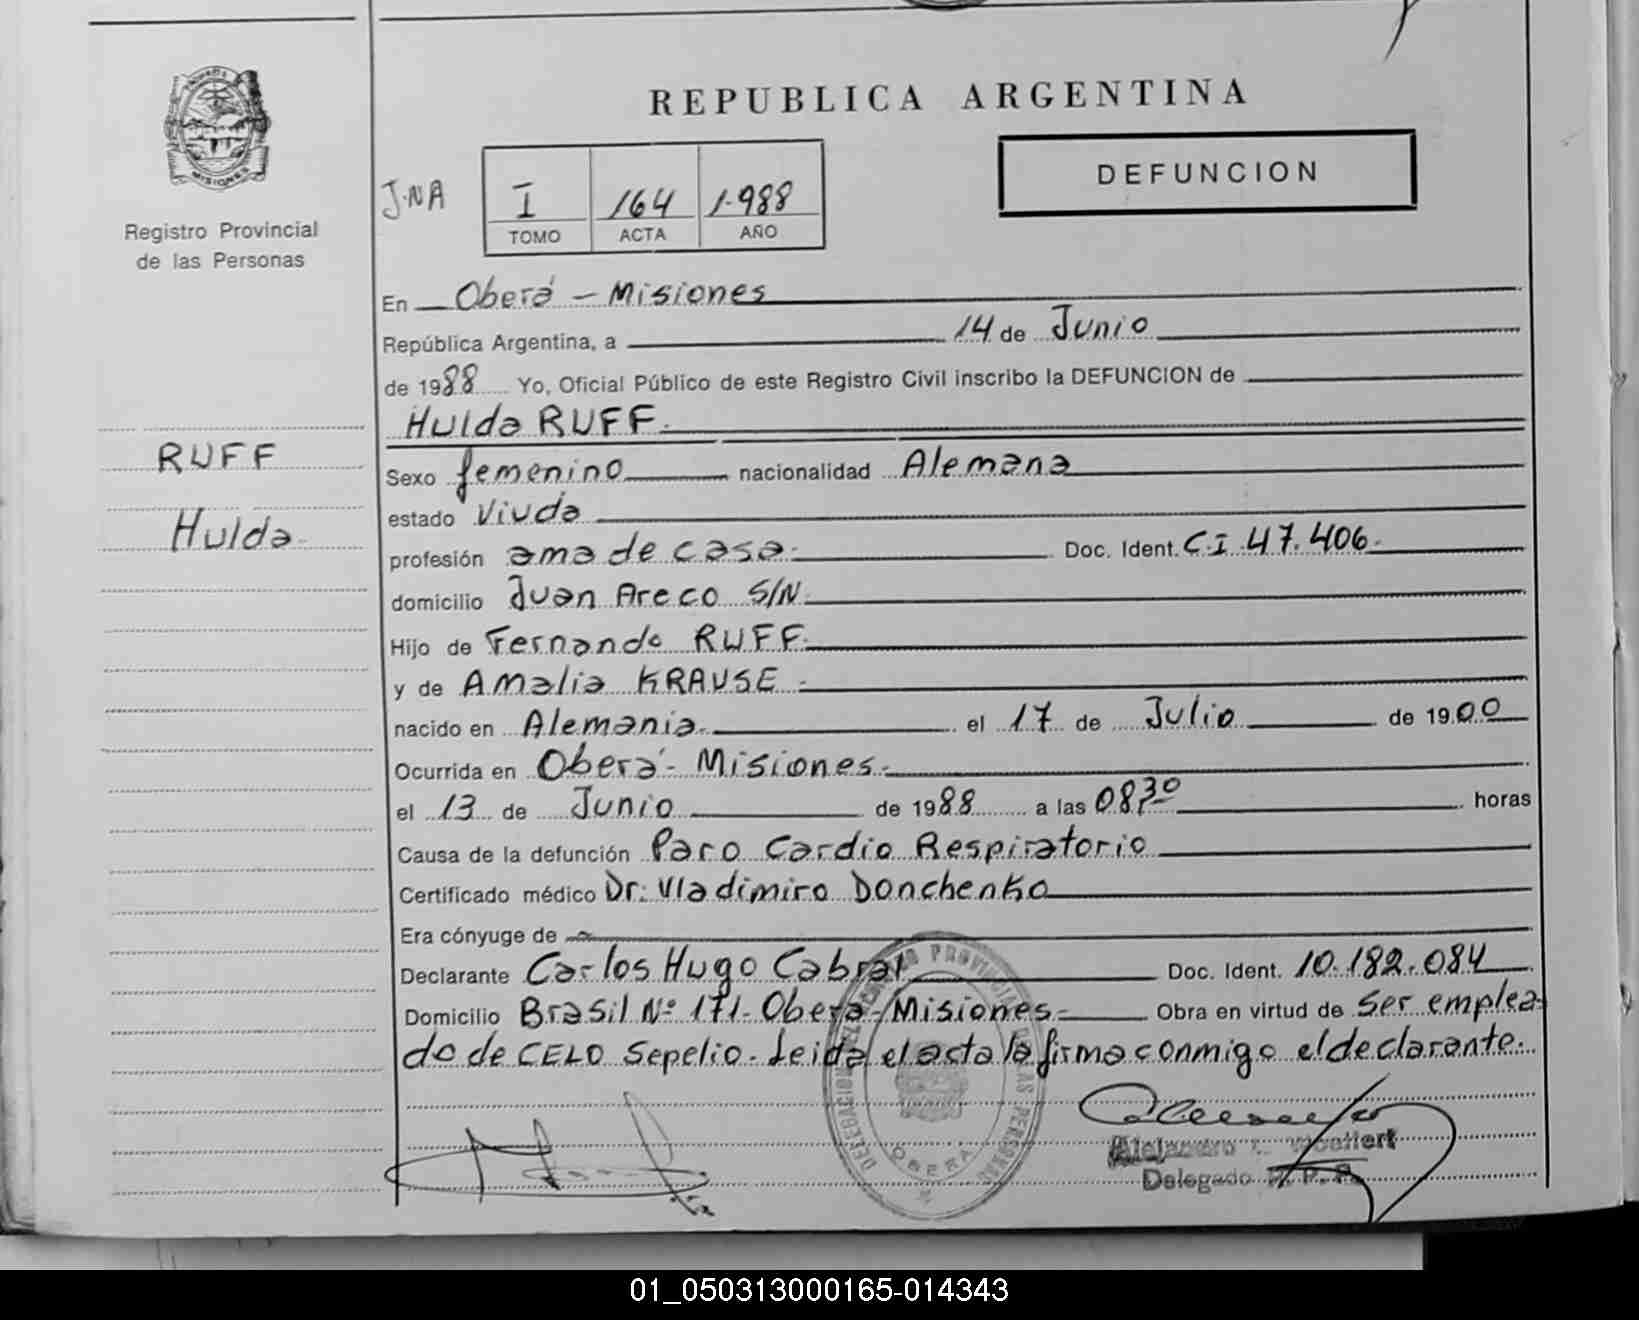 REPUBLICA ARGENTINA
MISIONES
Registro Provincial
de las Personas
J.NA
I 164 1.988
TOMO ACTA AÑO
DEFUNCION
En Oberá - Misiones
República Argentina, a 14 de Junio
de 1988 Yo, Oficial Público de este Registro Civil inscribo la DEFUNCION de
Hulda RUFF.
RUFF
Hulda.
Sexo femenino nacionalidad Alemana
estado Viuda
profesión ama de casa. Doc. Ident. C.I. 47.406.
domicilio Juan Areco S/N.
Hijo de Fernando RUFF.
y de Amalia KRAUSE.
nacido en Alemania. el 17 de Julio de 1900
Ocurrida en Oberá - Misiones.
el 13 de Junio de 1988 a las 08,30 horas
Causa de la defunción Paro Cardio Respiratorio
Certificado médico Dr. Vladimiro Donchenko
Era cónyuge de
Declarante Carlos Hugo Cabral Doc. Ident. 10.182.084
Domicilio Brasil Nº 171. Oberá/Misiones. Obra en virtud de Ser emplea
do de CELO Sepelio. Leida el acta la firma conmigo el declarante.
DELEGACION PROVINCIAL DE LAS PERSONAS
OBERA
Delegado R. P. P.
01_050313000165-014343